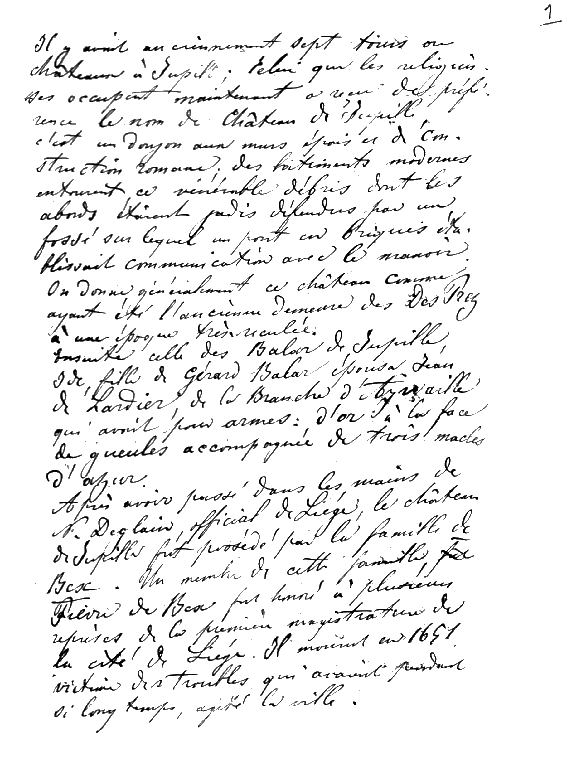 1
Il y avait anciennement sept tours ou
châteaux à Jupille; Celui que les religieu-
ses occupent maintenant a reçu de préfé-
rence le nom de Château de Jupille,
c'est un donjon aux murs épais et de con-
struction romane; des bâtiments modernes
entourent ce vénérable débris dont les
abords étaient jadis défendus par un
fossé sur lequel un pont en briques éta-
blissait communication avec le manoir.
On donne généralement ce château comme
ayant été l'ancienne demeure des Des Prez
à une époque très reculée.
Ensuite celle des Balar de Jupille
Ide, fille de Gérard Balar épousa Jean
de Lardier, de la Branche d'Aywaille
qui avait pour armes: d'or à la face
de gueules accompagnée de trois macles
d'azur.
Après avoir passé dans les mains de
N. Deglain, official de Liége, le château
de Jupille fut possédé par la famille de
Bex. Un membre de cette famille,
de Bex fut honoré à plusieurs
reprises de la première magistrature de
la cité de Liége. Il mourut en 1651
victime des troubles qui avaient pendant
si long temps, agité la ville.